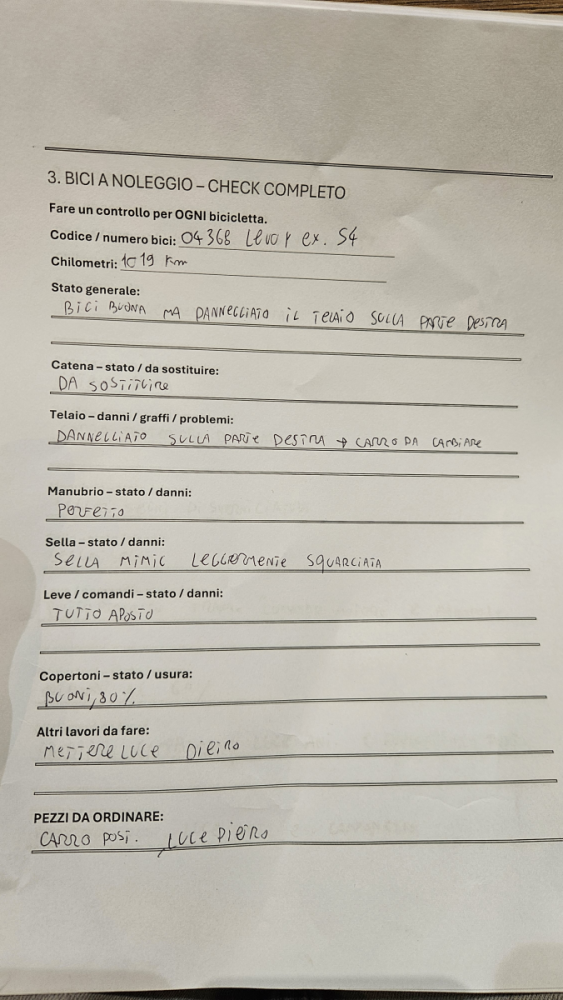 3. BICI A NOLEGGIO – CHECK COMPLETO
Fare un controllo per OGNI bicicletta.
Codice / numero bici: 04368 Levo Y ex. S4
Chilometri: 1019 Km
Stato generale:
BICI BUONA MA DANNEGLIATO IL TELAIO SULLA PARTE DESTRA
Catena – stato / da sostituire:
DA SOSTITUIRE
Telaio – danni / graffi / problemi:
DANNEGLIATO SULLA PARTE DESTRA → CARRO DA CAMBIARE
Manubrio – stato / danni:
PERFETTO
Sella – stato / danni:
SELLA MIMIC LEGGERMENTE SQUARCIATA
Leve / comandi – stato / danni:
TUTTO APOSTO
Copertoni – stato / usura:
BUONI, 80%
Altri lavori da fare:
METTERE LUCE DIETRO
PEZZI DA ORDINARE:
CARRO POST. , LUCE DIETRO